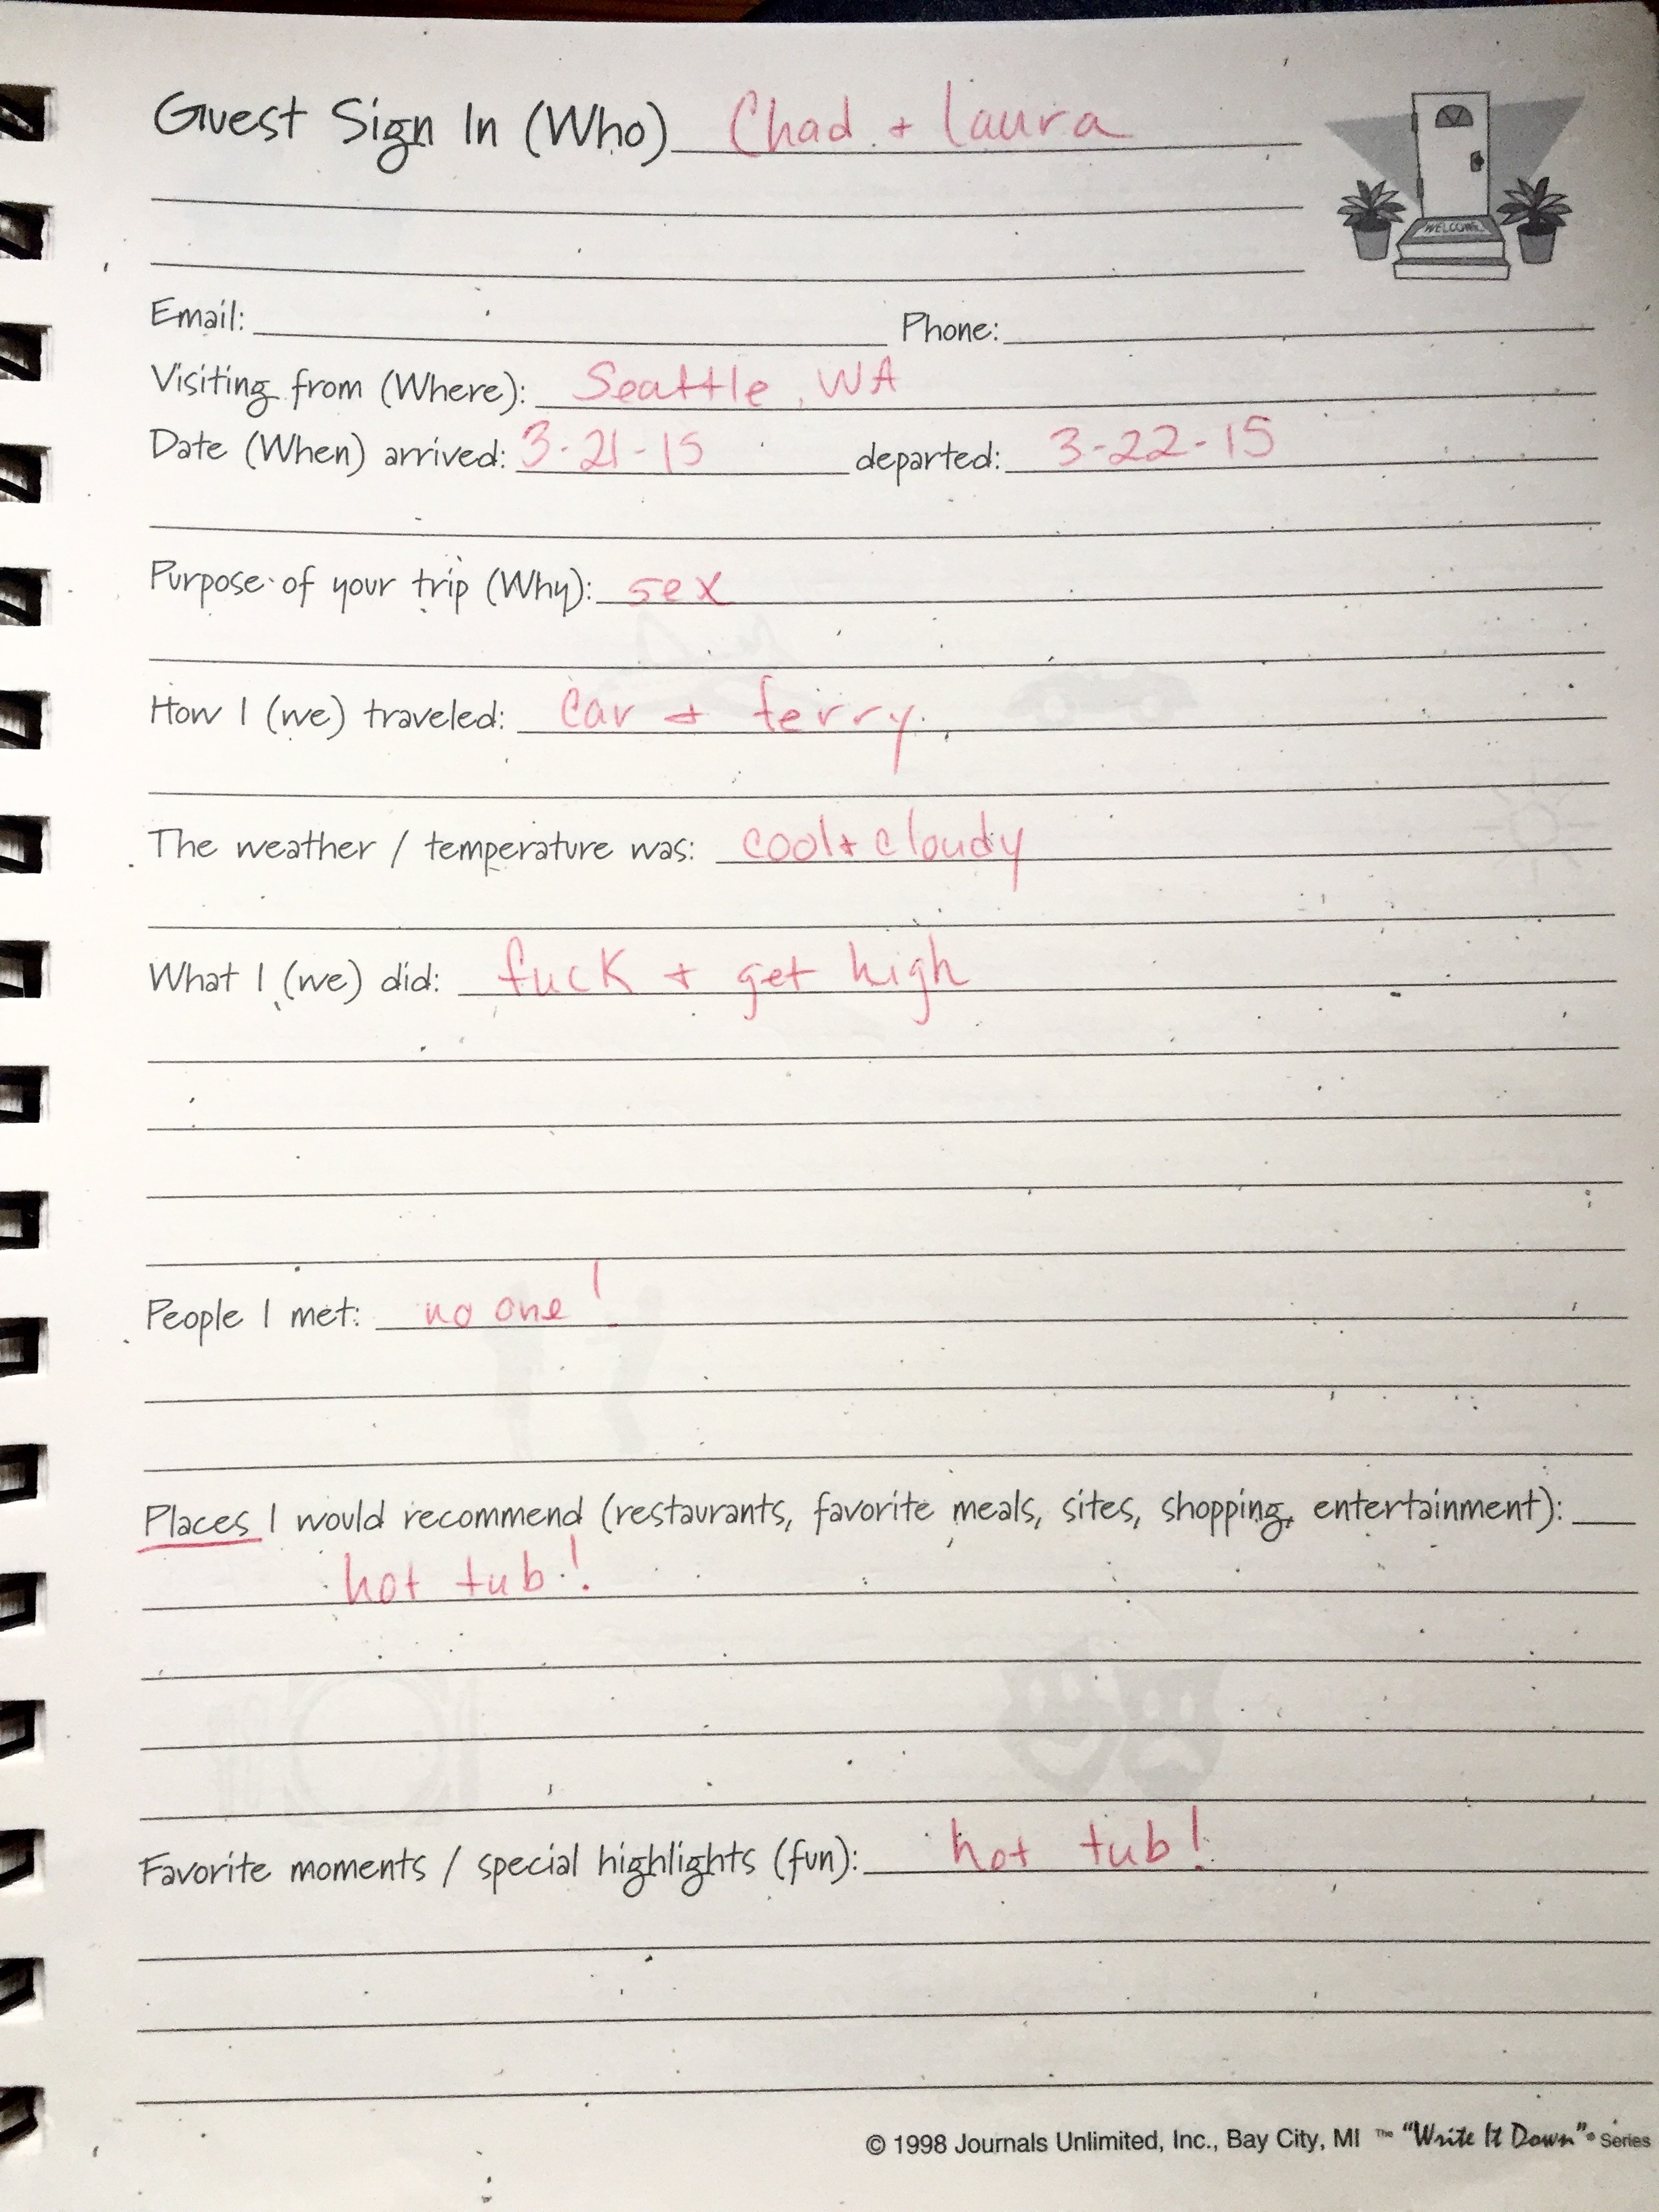 Guest Sign In (Who) Chad + Laura
WELCOME
Email: Phone:
Visiting from (Where): Seattle, WA
Date (When) arrived: 3-21-15 departed: 3-22-15
Purpose of your trip (Why): sex
How I (we) traveled: car + ferry
The weather / temperature was: cool + cloudy
What I (we) did: fuck + get high
People I met: no one!
Places I would recommend (restaurants, favorite meals, sites, shopping, entertainment):
hot tub!
Favorite moments / special highlights (fun): hot tub!
© 1998 Journals Unlimited, Inc., Bay City, MI ™ "Write It Down"® Series